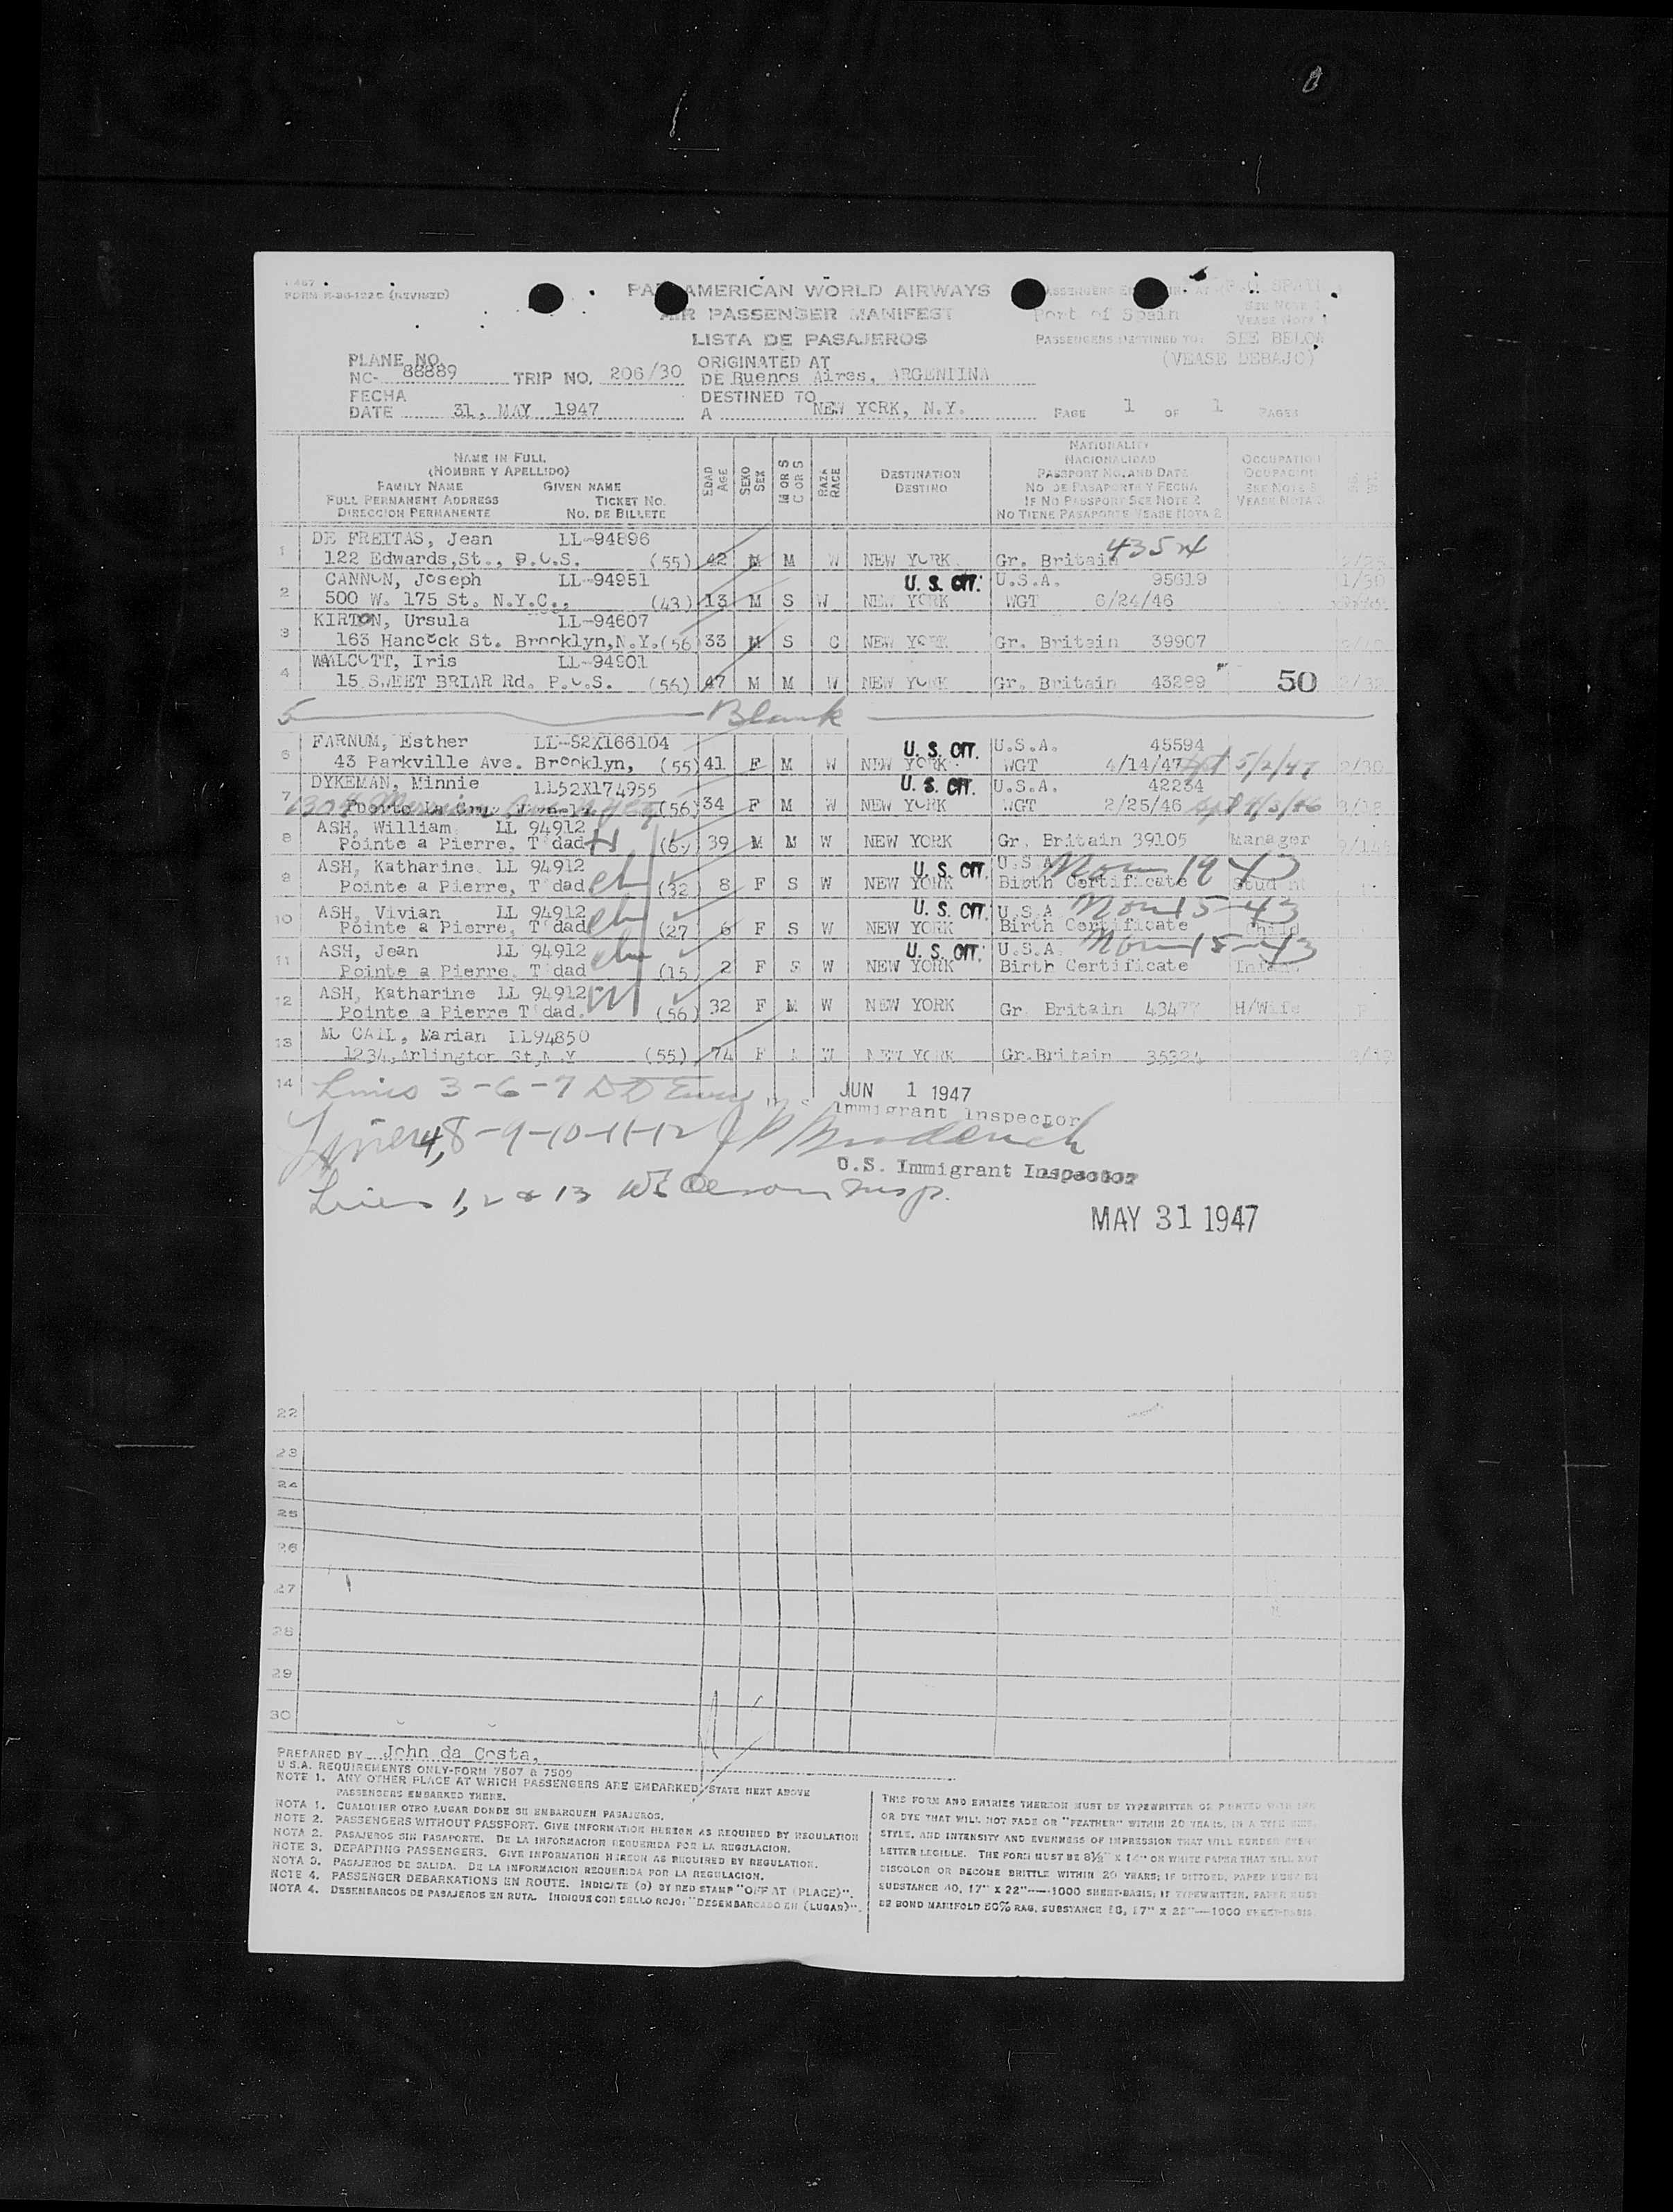 FORM
(REVISED)
PAN AMERICAN WORLD AIRWAYS
AIR PASSENGER MANIFEST
LISTA DE PASAJEROS
Port of Spain
PASSENGERS DESTINED TO: SEE BELOW
(VEASE DEBAJO)
SEE NOTE
VEASE NOTA
PLANE NO.
NC- 88889 TRIP NO. 206/30
ORIGINATED AT
DE Buenos Aires, ARGENTINA
FECHA
DATE 31, MAY 1947
DESTINED TO
A NEW YORK, N.Y.
PAGE 1 OF 1 PAGES
NAME IN FULL
(NOMBRE Y APELLIDO)
FAMILY NAME GIVEN NAME
FULL PERMANENT ADDRESS TICKET NO.
DIRECCION PERMANENTE NO. DE BILLETE
EDAD AGE
SEXO SEX
M OR S C OR S
RAZA RACE
DESTINATION
DESTINO
NATIONALITY
NACIONALIDAD
PASSPORT NO. AND DATE
NO DE PASAPORTE Y FECHA
IF NO PASSPORT SEE NOTE 2
NO TIENE PASAPORTE VEASE NOTA 2
OCCUPATION
OCUPACION
SEE NOTE
VEASE NOTA
1 DE FREITAS, Jean LL-94896
122 Edwards,St., P.O.S. (55) 42 M M W NEW YORK Gr. Britain
2 CANNON, Joseph LL-94951 U. S. CIT. U.S.A. 95619 1/30
500 W. 175 St. N.Y.C., (43) 13 M S W NEW YORK WGT 6/24/46
3 KIRTON, Ursula LL-94607
163 Hancock St. Brooklyn,N.Y.(56 33 M S C NEW YORK Gr. Britain 39907
4 WALCOTT, Iris LL-94901
15 SWEET BRIAR Rd. P.O.S. (56) 47 M M W NEW YORK Gr. Britain 43289 50
5 Blank
6 FARNUM, Esther LL-S2X166104 U. S. CIT. U.S.A. 45594
43 Parkville Ave. Brooklyn, (55) 41 F M W NEW YORK WGT 4/14/47 5/2/47 2/30
7 DYKEMAN, Minnie LL52X174955 U. S. CIT. U.S.A. 42234
(56) 34 F M W NEW YORK WGT 2/25/46
8 ASH, William LL 94912
Pointe a Pierre, T'dad 39 M M W NEW YORK Gr. Britain 39105 Manager
9 ASH, Katharine LL 94912 U. S. CIT. U.S.A
Pointe a Pierre, T'dad (32 8 F S W NEW YORK Birth Certificate Student
10 ASH, Vivian LL 94912 U. S. CIT. U.S.A
Pointe a Pierre, T'dad (27 6 F S W NEW YORK Birth Certificate Child
11 ASH, Jean LL 94912 U. S. CIT. U.S.A.
Pointe a Pierre, T'dad (15) 2 F S W NEW YORK Birth Certificate Infant
12 ASH, Katharine LL 94912
Pointe a Pierre T'dad. (56) 32 F M W NEW YORK Gr Britain H/Wife
13 Mc CAIL, Marian LL94850
1234,Arlington St,N.Y (55) 74 F W NEW YORK Gr.Britain 35324
14 Lines 3-6-7
JUN 1 1947
Immigrant Inspector
Lines 4, 8-9-10-11-12
U.S. Immigrant Inspector
Lines 1, 2 & 13 Insp.
MAY 31 1947
22
23
24
25
26
27
28
29
30
PREPARED BY John da Costa,
U.S.A. REQUIREMENTS ONLY-FORM 7507 & 7509
NOTE 1. ANY OTHER PLACE AT WHICH PASSENGERS ARE EMBARKED, STATE NEXT ABOVE
PASSENGERS EMBARKED THERE.
NOTA 1. CUALQUIER OTRO LUGAR DONDE SE EMBARQUEN PASAJEROS.
NOTE 2. PASSENGERS WITHOUT PASSPORT. GIVE INFORMATION HEREON AS REQUIRED BY REGULATION
NOTA 2. PASAJEROS SIN PASAPORTE. DE LA INFORMACION REQUERIDA POR LA REGULACION.
NOTE 3. DEPARTING PASSENGERS. GIVE INFORMATION HEREON AS REQUIRED BY REGULATION.
NOTA 3. PASAJEROS DE SALIDA. DE LA INFORMACION REQUERIDA POR LA REGULACION.
NOTE 4. PASSENGER DEBARKATIONS EN ROUTE. INDICATE (D) BY RED STAMP "OFF AT (PLACE)".
NOTA 4. DESEMBARCOS DE PASAJEROS EN RUTA. INDIQUE CON SELLO ROJO: "DESEMBARCADO EN (LUGAR)".
THIS FORM AND ENTRIES THEREON MUST BE TYPEWRITTEN OR PRINTED WITH INK
OR DYE THAT WILL NOT FADE OR "FEATHER" WITHIN 20 YEARS, IN A TYPE SIZE,
STYLE, AND INTENSITY AND EVENNESS OF IMPRESSION THAT WILL RENDER EVERY
LETTER LEGIBLE. THE FORM MUST BE 8½" X 14" ON WHITE PAPER THAT WILL NOT
DISCOLOR OR BECOME BRITTLE WITHIN 20 YEARS; IF DITTOED, PAPER MUST BE
SUBSTANCE 40, 17" X 22"—1000 SHEET-BASIS; IF TYPEWRITTEN, PAPER MUST
BE BOND MANIFOLD 50% RAG, SUBSTANCE 18, 17" X 22"—1000 SHEET-BASIS.